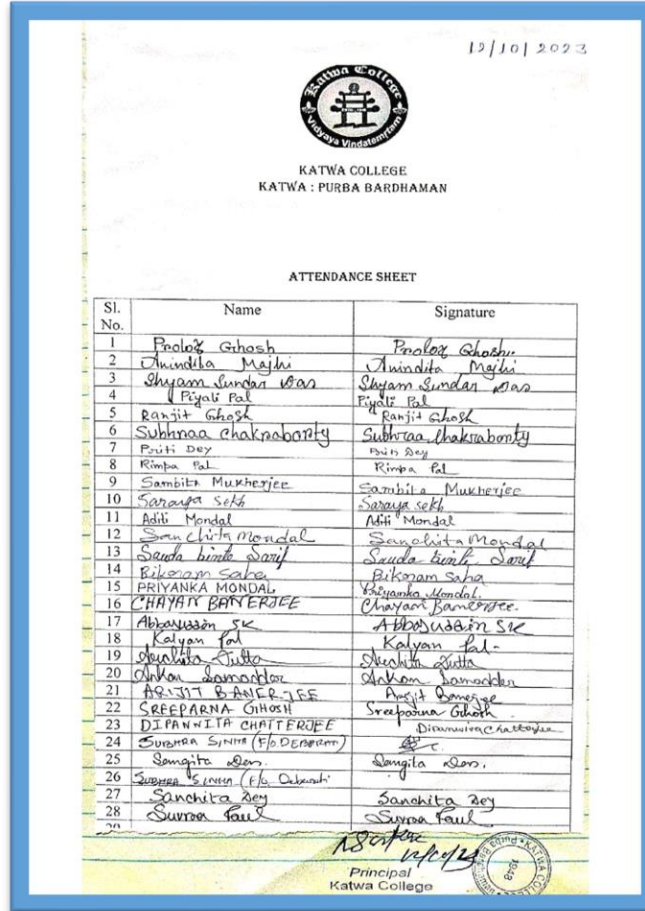 12/10/2023
Katwa College
Vidyaya Vindatemrtam
KATWA COLLEGE
KATWA : PURBA BARDHAMAN
ATTENDANCE SHEET
Sl. No. Name Signature
1 Prolay Ghosh Prolay Ghosh
2 Anindita Majhi Anindita Majhi
3 Shyam Sundar Das Shyam Sundar Das
4 Piyali Pal Piyali Pal
5 Ranjit Ghosh Ranjit Ghosh
6 Subhraa Chakraborty Subhraa Chakraborty
7 Priti Dey Priti Dey
8 Rimpa Pal Rimpa Pal
9 Sambita Mukherjee Sambita Mukherjee
10 Saraya Sekh Saraya Sekh
11 Aditi Mondal Aditi Mondal
12 Sanchita Mondal Sanchita Mondal
13 Sauda binte Sarif Sauda binte Sarif
14 Bikoram Saha Bikoram Saha
15 PRIYANKA MONDAL Priyanka Mondal.
16 CHAYAN BANERJEE Chayan Banerjee.
17 Abbasuddin SK Abbasuddin SK
18 Kalyan Pal Kalyan Pal-
19 Archita Dutta Archita Dutta
20 Ankan Samadder Ankan Samadder
21 ARIJIT BANERJEE Arijit Banerjee
22 SREEPARNA GHOSH Sreeparna Ghosh
23 DIPANWITA CHATTERJEE Dipanwita Chatterjee
24 SUBHRA SINHA (F/O. DEBABRATI)
25 Sangita Den. Sangita Den.
26 SUBHRA SINHA (F/o. Debarati
27 Sanchita Dey Sanchita Dey
28 Suvroa Paul Suvroa Paul
12/10/23
Principal
Katwa College
1948